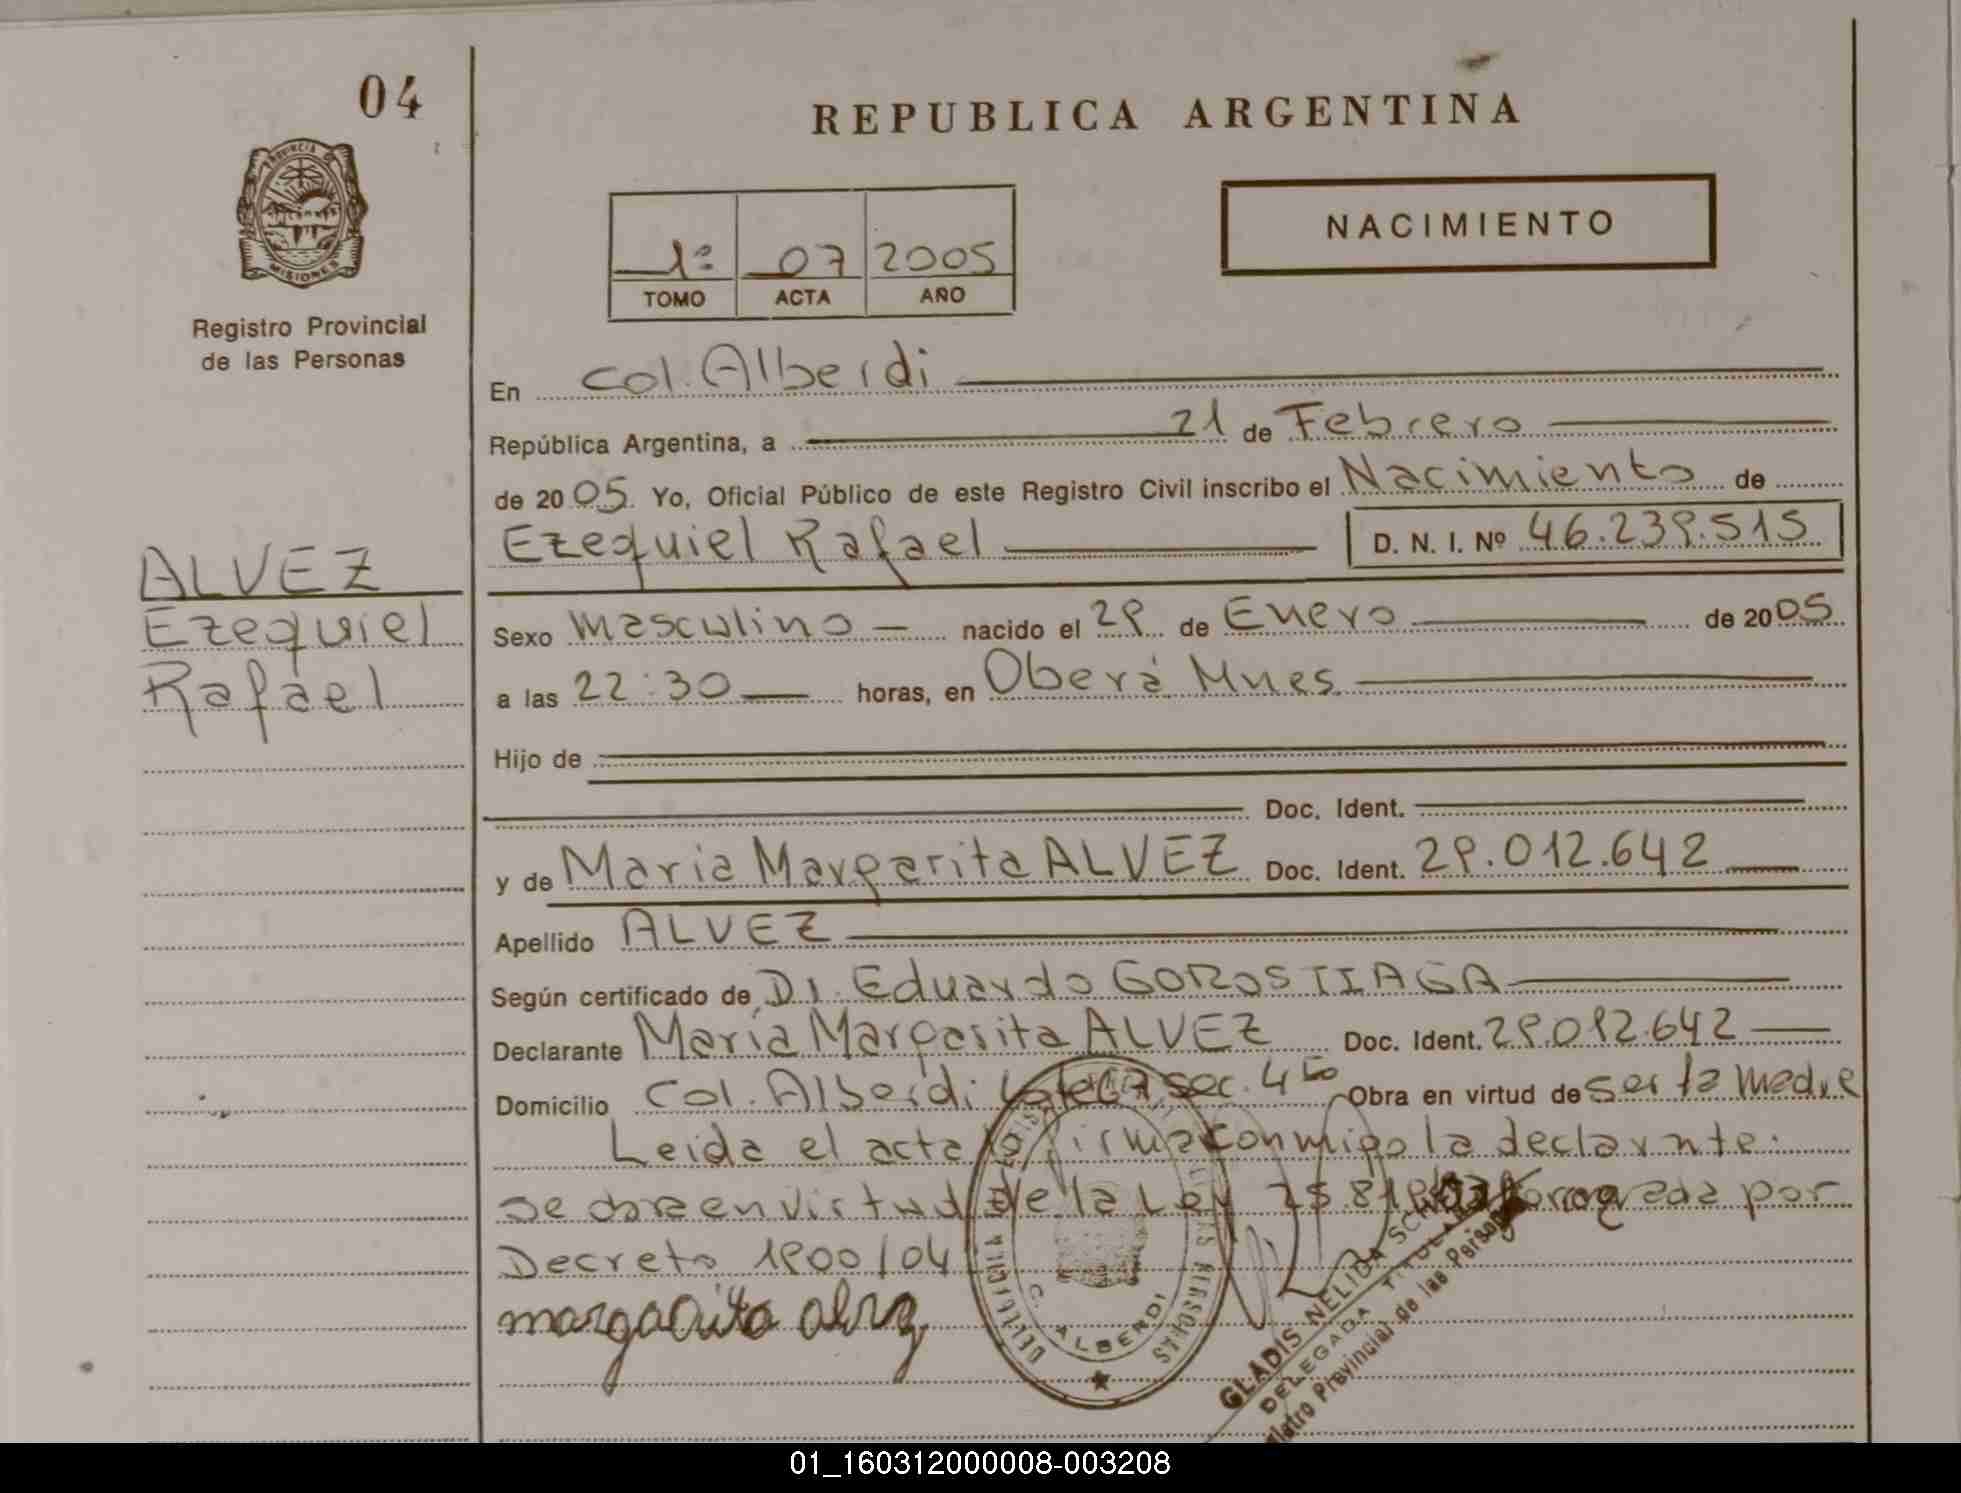 04
REPUBLICA ARGENTINA
PROVINCIA DE
MISIONES
Registro Provincial
de las Personas
NACIMIENTO
1º 07 2005
TOMO ACTA AÑO
En Col. Alberdi
República Argentina, a 21 de Febrero
de 2005. Yo, Oficial Público de este Registro Civil inscribo el Nacimiento de
Ezequiel Rafael D. N. I. Nº 46.239.515
ALVEZ
Ezequiel
Rafael
Sexo Masculino nacido el 29 de Enero de 2005
a las 22:30 horas, en Oberá Mnes
Hijo de
Doc. Ident.
y de Maria Margarita ALVEZ Doc. Ident. 29.012.642
Apellido ALVEZ
Según certificado de Dr. Eduardo GOROSTIAGA
Declarante María Margarita ALVEZ Doc. Ident. 29.012.642
Domicilio Col. Alberdi sec. 4 Obra en virtud de ser la madre
Leida el acta la firma conmigo la declarante:
Se obra en virtud de la Ley por
Decreto 1900/04
margarita
C. ALBERDI
GLADIS NELIDA
DELEGADA TITULAR
Provincial de las Personas
01_160312000008-003208